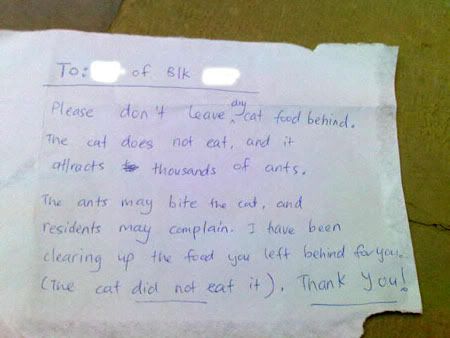 To: of Blk
Please don't leave dry cat food behind.
The cat does not eat, and it
attracts thousands of ants.
The ants may bite the cat, and
residents may complain. I have been
clearing up the food you left behind for you.
(The cat did not eat it). Thank You!